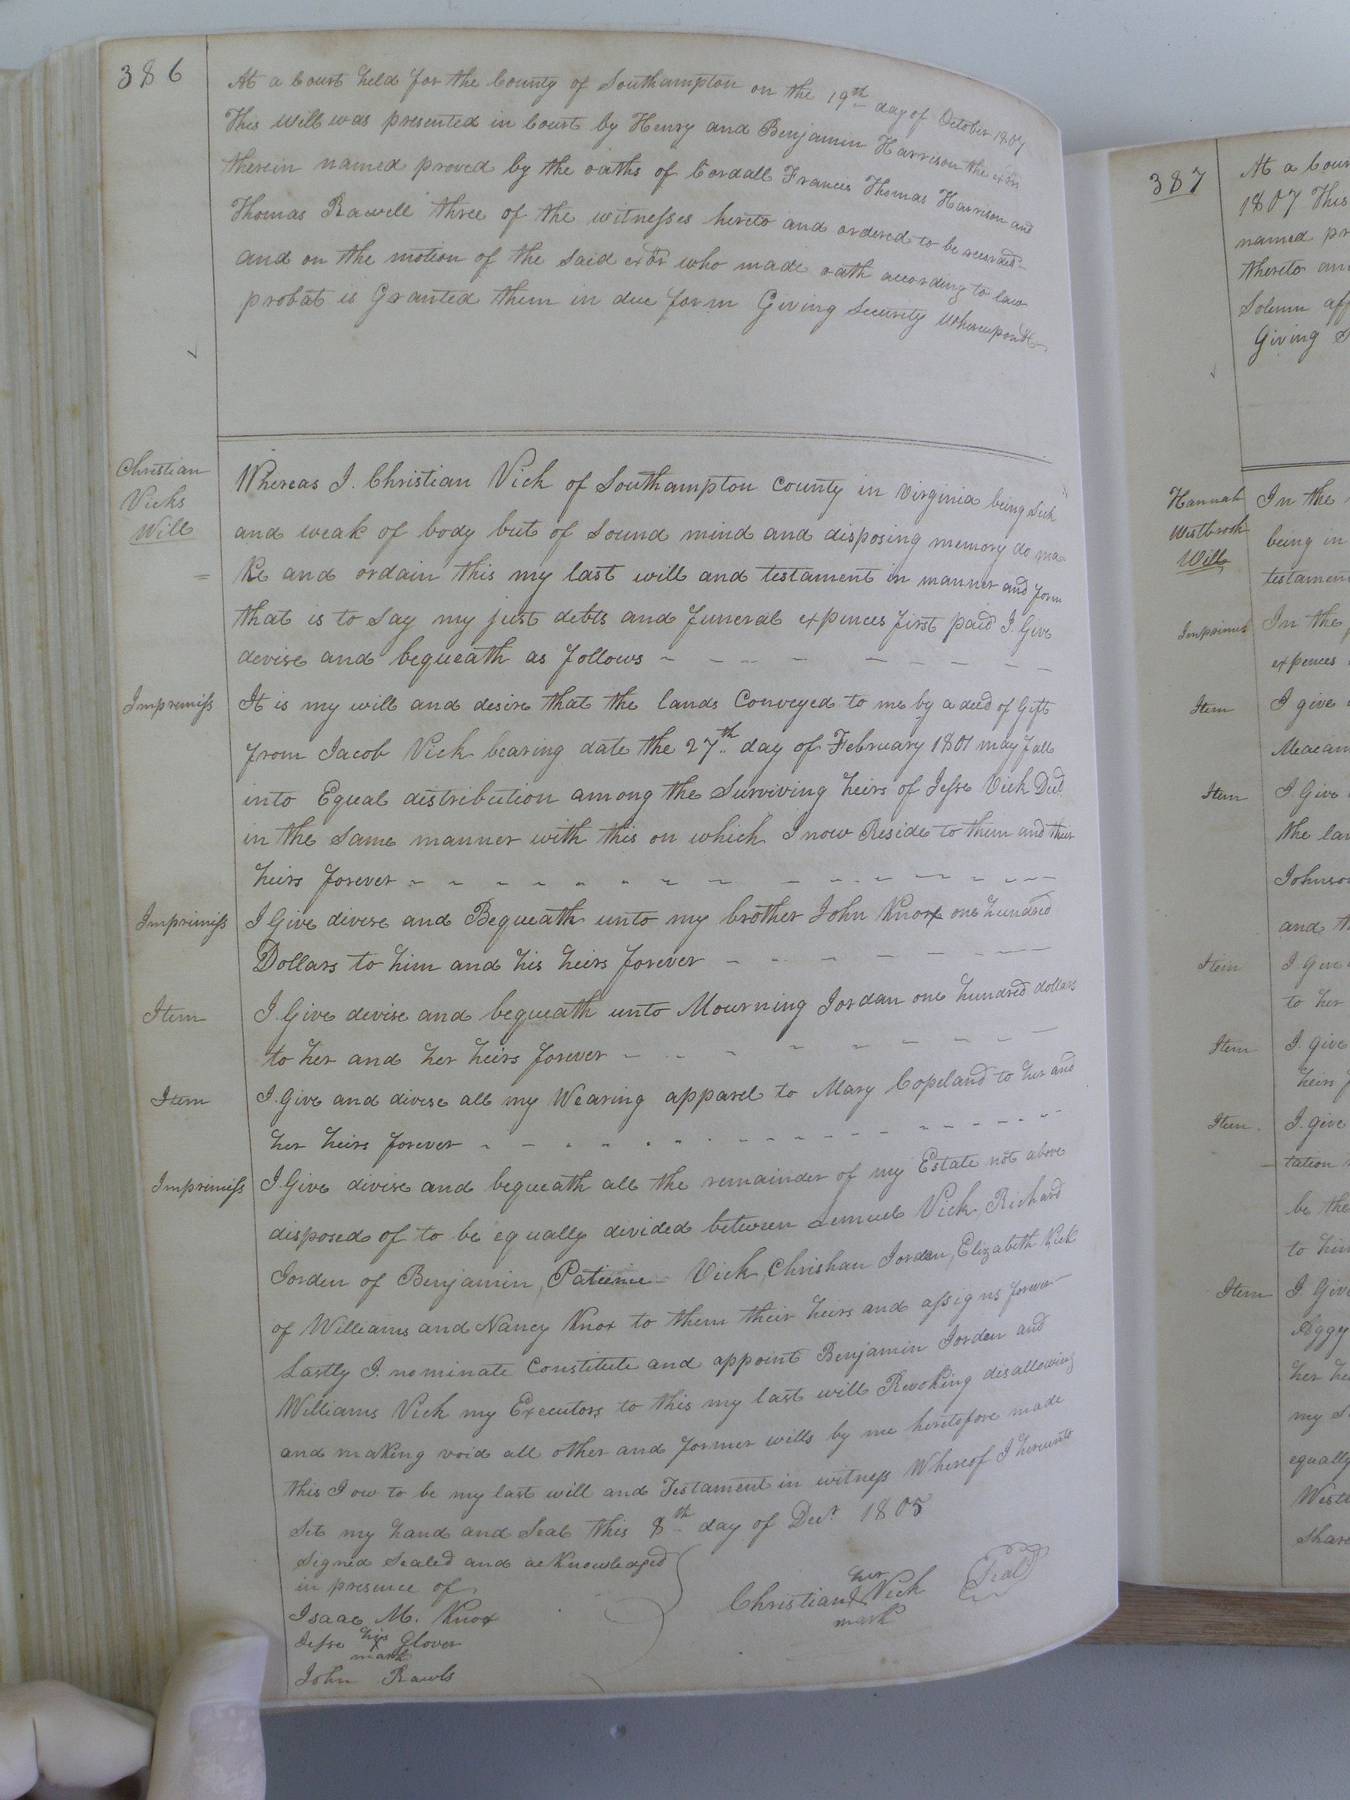 386
At a Court held for the County of Southampton on the 19th day of October 1807
This will was presented in Court by Henry and Benjamin Harrison the exōrs
therein named proved by the oaths of Cordall Francis Thomas Harrison and
Thomas Rawell three of the witnesses hereto and ordered to be recorded
and on the motion of the said exōrs who made oath according to law
probat is Granted them in due form Giving Security
Christian
Vicks
Will
Whereas I. Christian Vick of Southampton County in Virginia being Sick
and weak of body but of Sound mind and disposing memory do ma
ke and ordain this my last will and testament in manner and form
that is to Say my just debts and funeral expences first paid I. Give
devise and bequeath as follows
Impremiss It is my will and desire that the lands Conveyed to me by a deed of Gift
from Jacob Vick bearing date the 27th day of February 1801 may fall
into Equal distribution among the Surviving heirs of Jesse Vick Decd
in the Same manner with this on which I now Reside to them and their
heirs forever
Impremiss I Give divise and Bequeath unto my brother John Knox one hundred
Dollars to him and his heirs forever
Item I Give divise and bequeath unto Mourning Jordan one hundred dollars
to her and her heirs forever
Item I. Give and divise all my Wearing apparel to Mary Copeland to her and
her heirs forever
Impremiss I Give divise and bequeath all the remainder of my Estate not above
disposed of to be equally divided between Lemuel Vick, Richard
Jorden of Benjamin, Patience Vick, Christian Jordan, Elizabeth Vick
of Williams and Nancy Knox to them their heirs and assigns forever
Lastly I. nominate Constitute and appoint Benjamin Jordan and
Williams Vick my Executors to this my last will Revoking disallowing
and making void all other and former wills by me heretofore made
this I ow to be my last will and Testament in witness Whereof I hereunto
Set my hand and Seal this 8th day of Decr 1805
Signed Sealed and acknowledged
in presence of
Isaac M. Knox
Jesse his Glover
mark
John Rawls
her
Christian X Vick
mark
Seal
387
At a Cour
1807 This
named pr
thereto an
Solemn aff
Giving S
Hannah
Westbrook
Will
In the
being in
testamen
Imprimis In the
expences
Item I give
Meacam
Item I Give
the la
Johnso
and th
Item I Give
to her
Item I. give
heirs f
Item I. give
tation
be the
to him
Item I. Give
Aggy
her he
my S
equally
West
Share